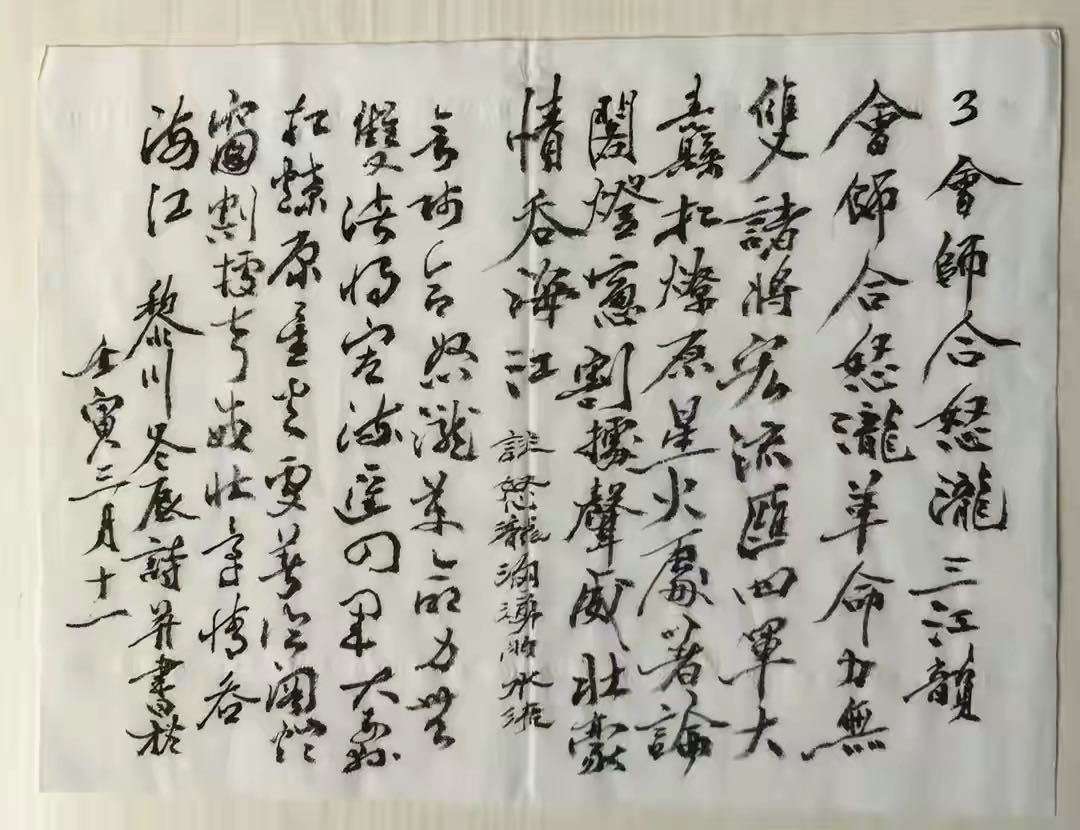 3會師合怒瀧 三江韻
會師合怒瀧革命力無
雙諸將宏流匯四軍大
纛扛燎原星火處著論
閣燈窻割據聲威壯豪
情吞海江 註怒瀧洶湧的水流
會師合怒瀧革命力無
雙諸將宏流匯四軍大纛
扛燎原星火處著論閣燈
窗割據聲威壯豪情吞
海江 黎川辰詩并書於
壬寅三月十一